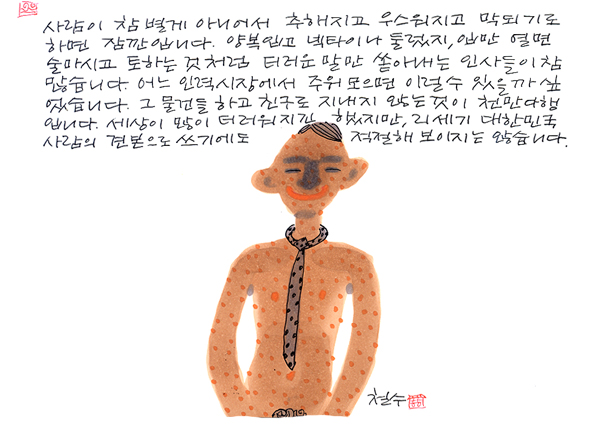 사람이 참 별게 아니어서 추해지고 우스워지고 막되기로
하면 잠깐입니다. 양복입고 넥타이나 둘렀지, 입만 열면
술마시고 토하는 것처럼 더러운 말만 쏟아내는 인사들이 참
많습니다. 어느 인력시장에서 주워 모으면 이럴수 있을까 싶
었습니다. 그 물건들하고 친구로 지내지 않는 것이 천만다행
입니다. 세상이 많이 더러워지긴 했지만, 21세기 대한민국
사람의 견본으로 쓰기에도 적절해 보이지는 않습니다.
철수